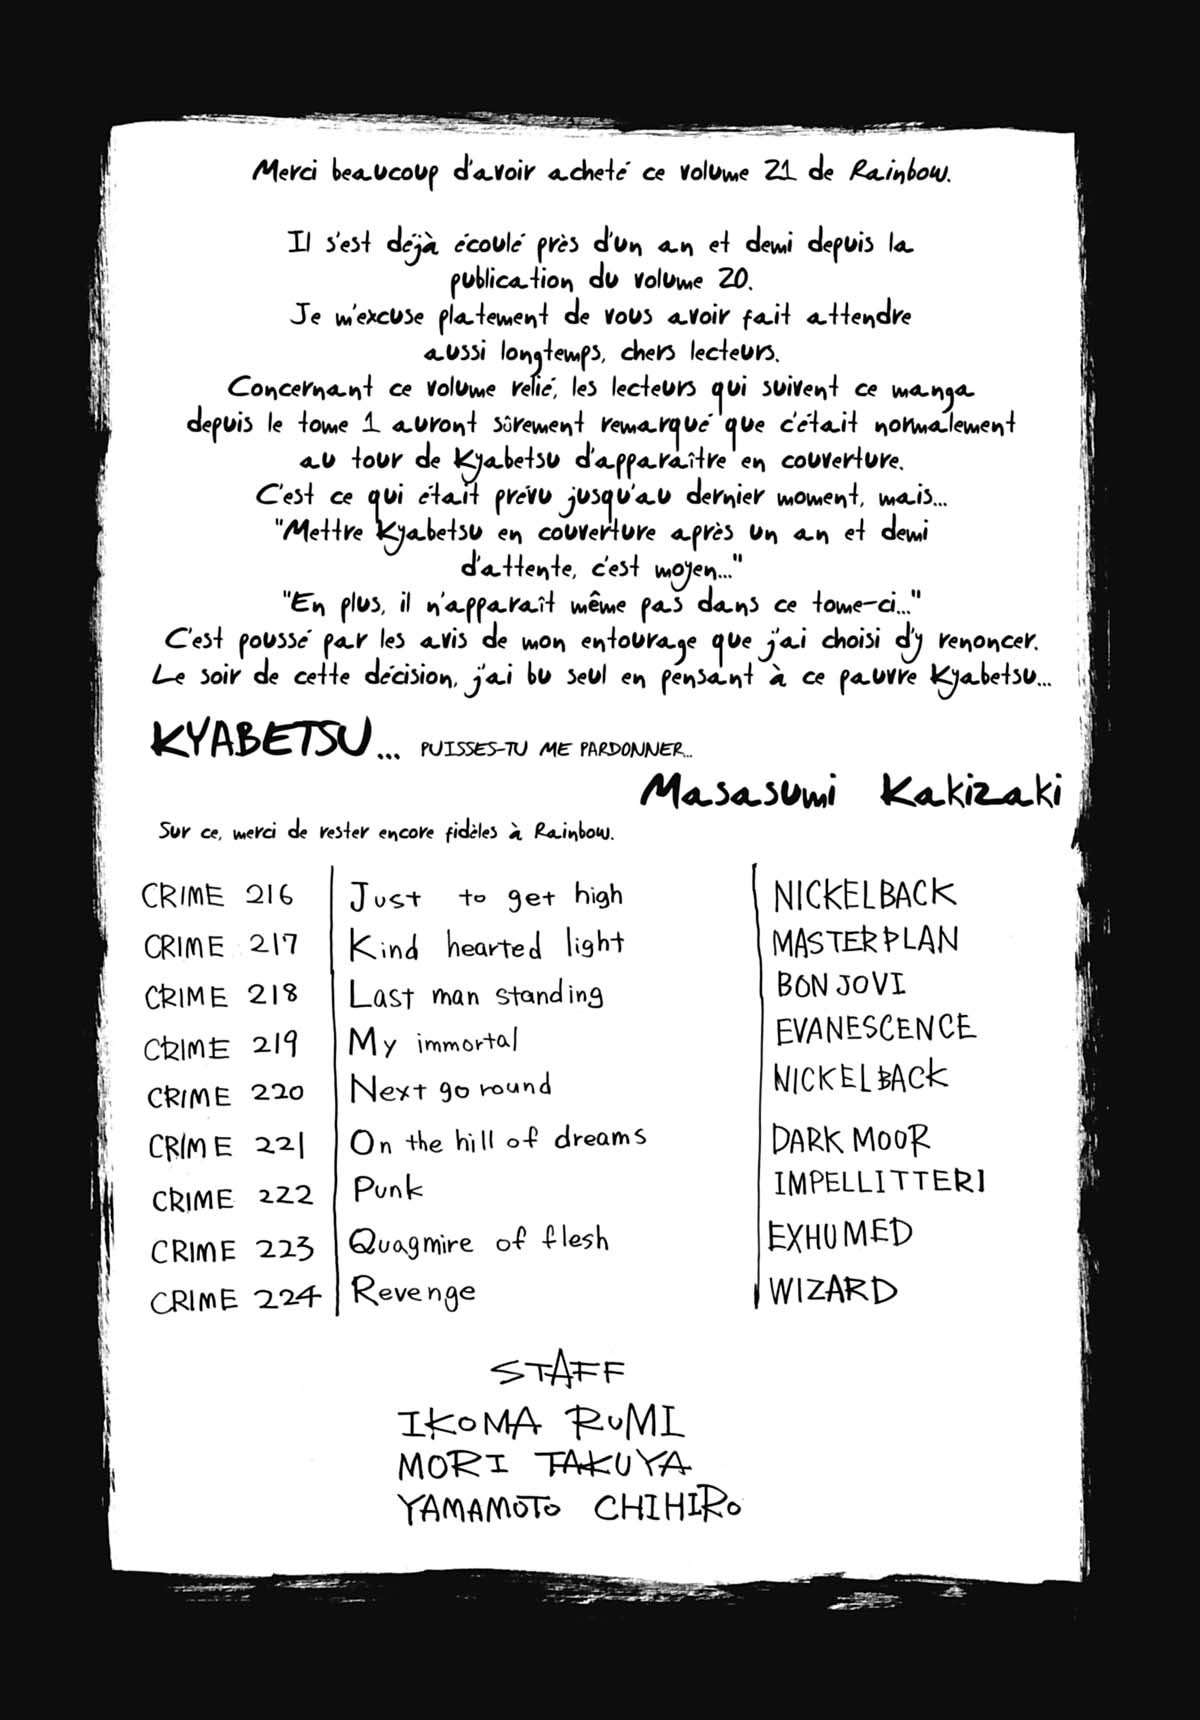 Merci beaucoup d'avoir acheté ce volume 21 de Rainbow.
Il s'est déjà écoulé près d'un an et demi depuis la
publication du volume 20.
Je m'excuse platement de vous avoir fait attendre
aussi longtemps, chers lecteurs.
Concernant ce volume relié, les lecteurs qui suivent ce manga
depuis le tome 1 auront sûrement remarqué que c'était normalement
au tour de Kyabetsu d'apparaître en couverture.
C'est ce qui était prévu jusqu'au dernier moment, mais...
"Mettre Kyabetsu en couverture après un an et demi
d'attente, c'est moyen..."
"En plus, il n'apparaît même pas dans ce tome-ci..."
C'est poussé par les avis de mon entourage que j'ai choisi d'y renoncer.
Le soir de cette décision, j'ai bu seul en pensant à ce pauvre Kyabetsu...
KYABETSU... PUISSES-TU ME PARDONNER...
Masasumi Kakizaki
Sur ce, merci de rester encore fidèles à Rainbow.
CRIME 216 Just to get high NICKELBACK
CRIME 217 Kind hearted light MASTERPLAN
CRIME 218 Last man standing BON JOVI
CRIME 219 My immortal EVANESCENCE
CRIME 220 Next go round NICKELBACK
CRIME 221 On the hill of dreams DARK MOOR
CRIME 222 Punk IMPELLITTERI
CRIME 223 Quagmire of flesh EXHUMED
CRIME 224 Revenge WIZARD
STAFF
IKOMA RUMI
MORI TAKUYA
YAMAMOTO CHIHIRO